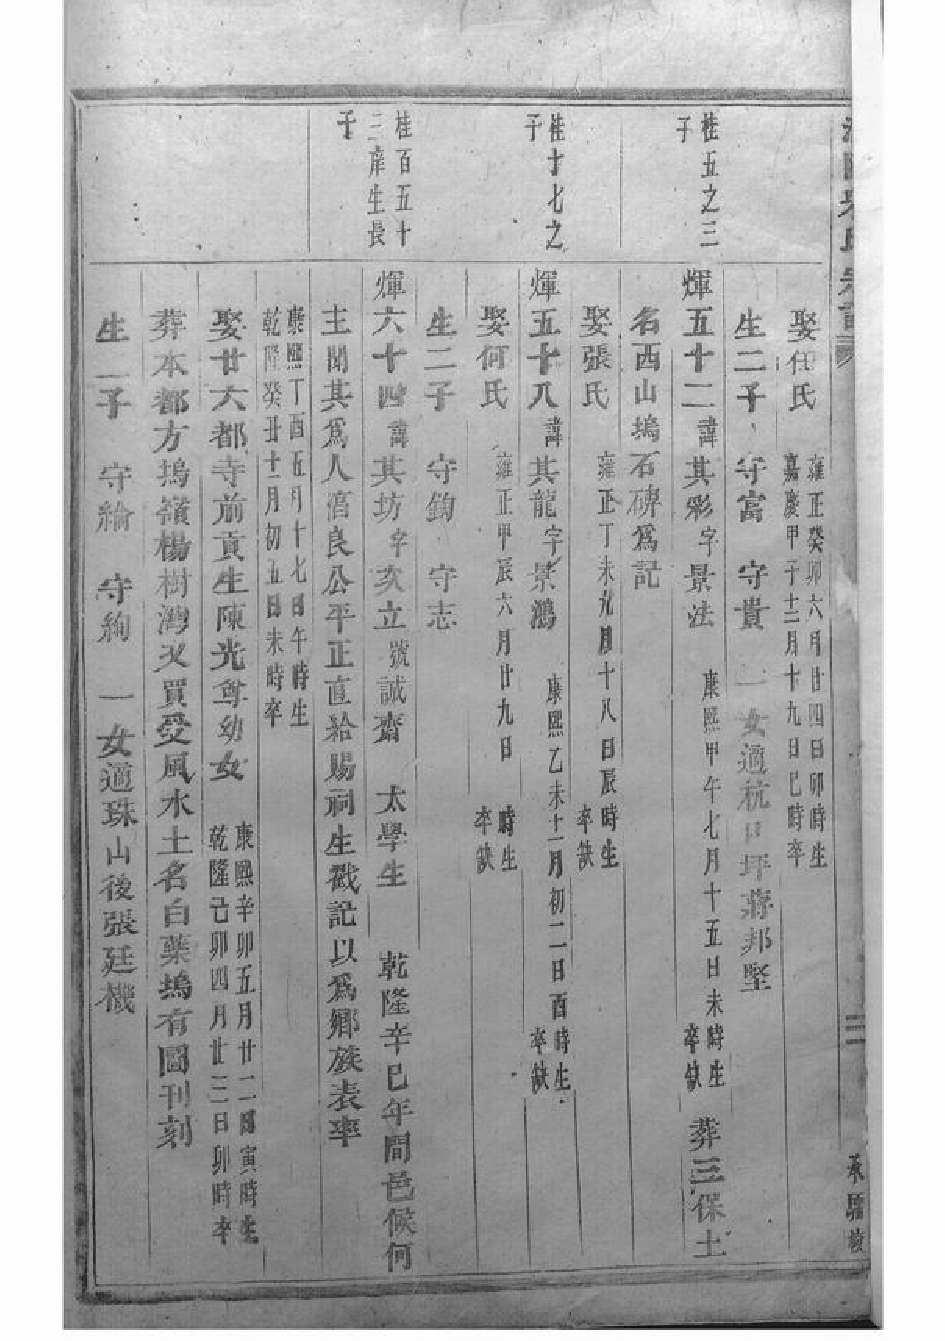 娶任氏
雍正癸卯六月廿四日卯時生
嘉慶甲子十二月十九日巳時卒
生二子 守富 守貴 一女適杭口坪蔣邦堅
桂五之三
子
輝五十二諱其彩字景法 康熙甲午七月十五日未時生
卒缺
葬三保土
名西山塢石磚為記
娶張氏 雍正丁未九月十八日辰時生
卒缺
桂十七之
子
輝五十八諱其龍字景鴻 康熙乙未十二月初二日酉時生
卒缺
娶何氏 雍正甲辰六月廿九日 時生
卒缺
生二子 守鈞 守志
桂百五十
三庠生長
子
輝六十四諱其坊字次立號誠齋 太學生 乾隆辛巳年間邑候何
主聞其爲人淳良公平正直給賜祠生戳記以爲鄉族表率
康熙丁酉五月十七日午時生
乾隆癸丑十一月初五日未時卒
娶廿六都寺前貢生陳光尊幼女
康熙辛卯五月廿二日寅時生
乾隆己卯四月廿三日卯時卒
葬本都方塢嶺楊樹灣又買受風水土名白藥塢有圖刊刻
生二子 守綸 守絢 一女適珠山後張廷機